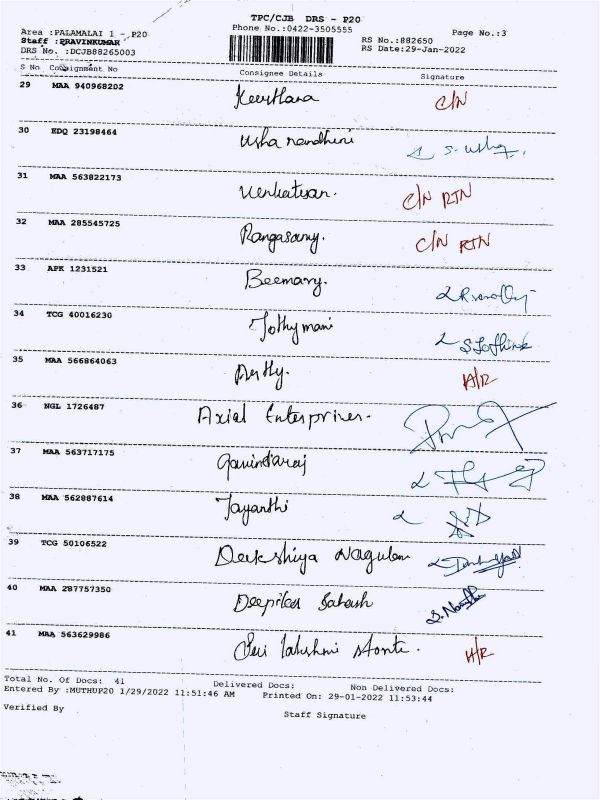 TPC/CJB DRS - P20
Area :PALAMALAI 1 - P20 Phone No.:0422-3505555 Page No.:3
Staff :PRAVINKUMAR RS No.:882650
DRS No. :DCJB88265003 RS Date:29-Jan-2022
S No Consignment No Consignee Details Signature
29 MAA 940968202 Keerthana C/N
30 EDQ 23198464 Usha nandhini S. Usha
31 MAA 563822173 Venkatesan. C/N RTN
32 MAA 285545725 Rangasamy. C/N RTN
33 APK 1231521 Beemary.
34 TCG 40016230 Jothymani
35 MAA 566864063 A/R
36 NGL 1726487 Axial Enterprises.
37 MAA 563717175 Govindaraj
38 MAA 562887614 Jayanthi
39 TCG 50106522
40 MAA 287757350 Deepika
41 MAA 563629986 Lakshmi A/R
Total No. Of Docs: 41 Delivered Docs: Non Delivered Docs:
Entered By :MUTHUP20 1/29/2022 11:51:46 AM Printed On: 29-01-2022 11:53:44
Verified By Staff Signature